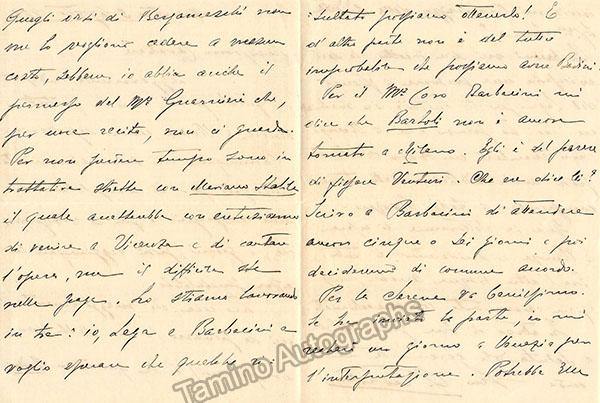 Quegli orsi di Bergamaschi non
me lo vogliono cedere a nessun
costo, sebbene io abbia anche il
permesso del Mº Guarnieri che,
per una recita, non ci guarda.
Per non perdere tempo sono in
trattative strette con Mariano Stabile
il quale accetterebbe con entusiasmo
di venire a Vicenza e di cantare
l'opera, ma il difficile sta
nelle paghe. Lo stiamo lavorando
in tre: io, Lega e Barbacini e
voglio sperare che qualche ri=
sultato possiamo ottenerlo! E
d'altra parte non è del tutto
improbabile che possiamo avere Badini.
Per il Mº Coro Barbacini mi
dice che Bartoli non è ancora
tornato a Milano. Egli è del parere
di fissare Venturi. Che ne dice lei?
Scrivo a Barbacini di attendere
ancora cinque o sei giorni e poi
decideremo di comune accordo.
Per la Serena va benissimo.
le ho la parte, io mi
un giorno a Venezia per
l'interpretazione. Potrebbe Ella
Tamino Autographs